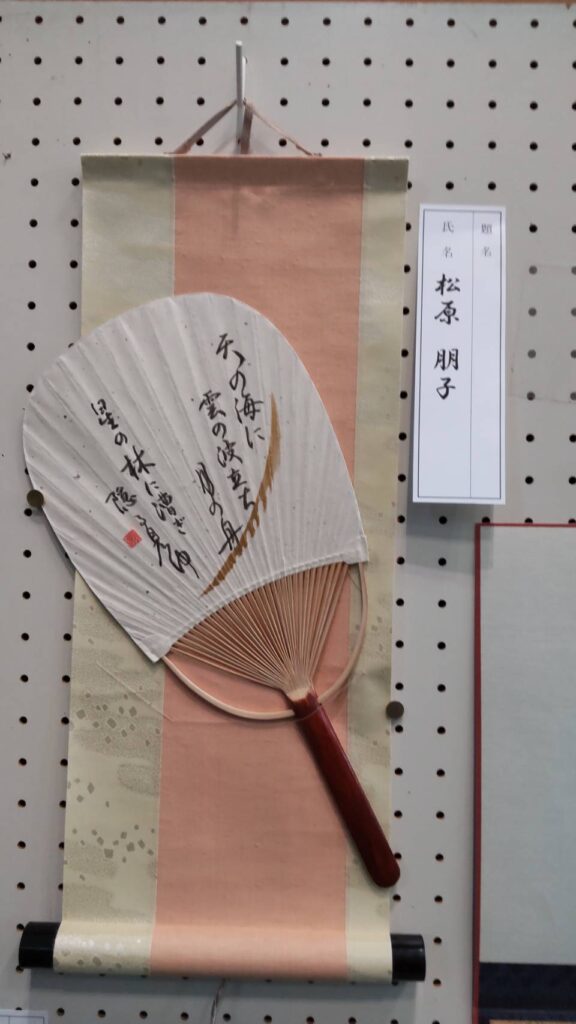 天の海に
雲の波立ち
月の舟
星の林に漕ぎ
隠る見ゆ
題名
氏名
松原 朋子